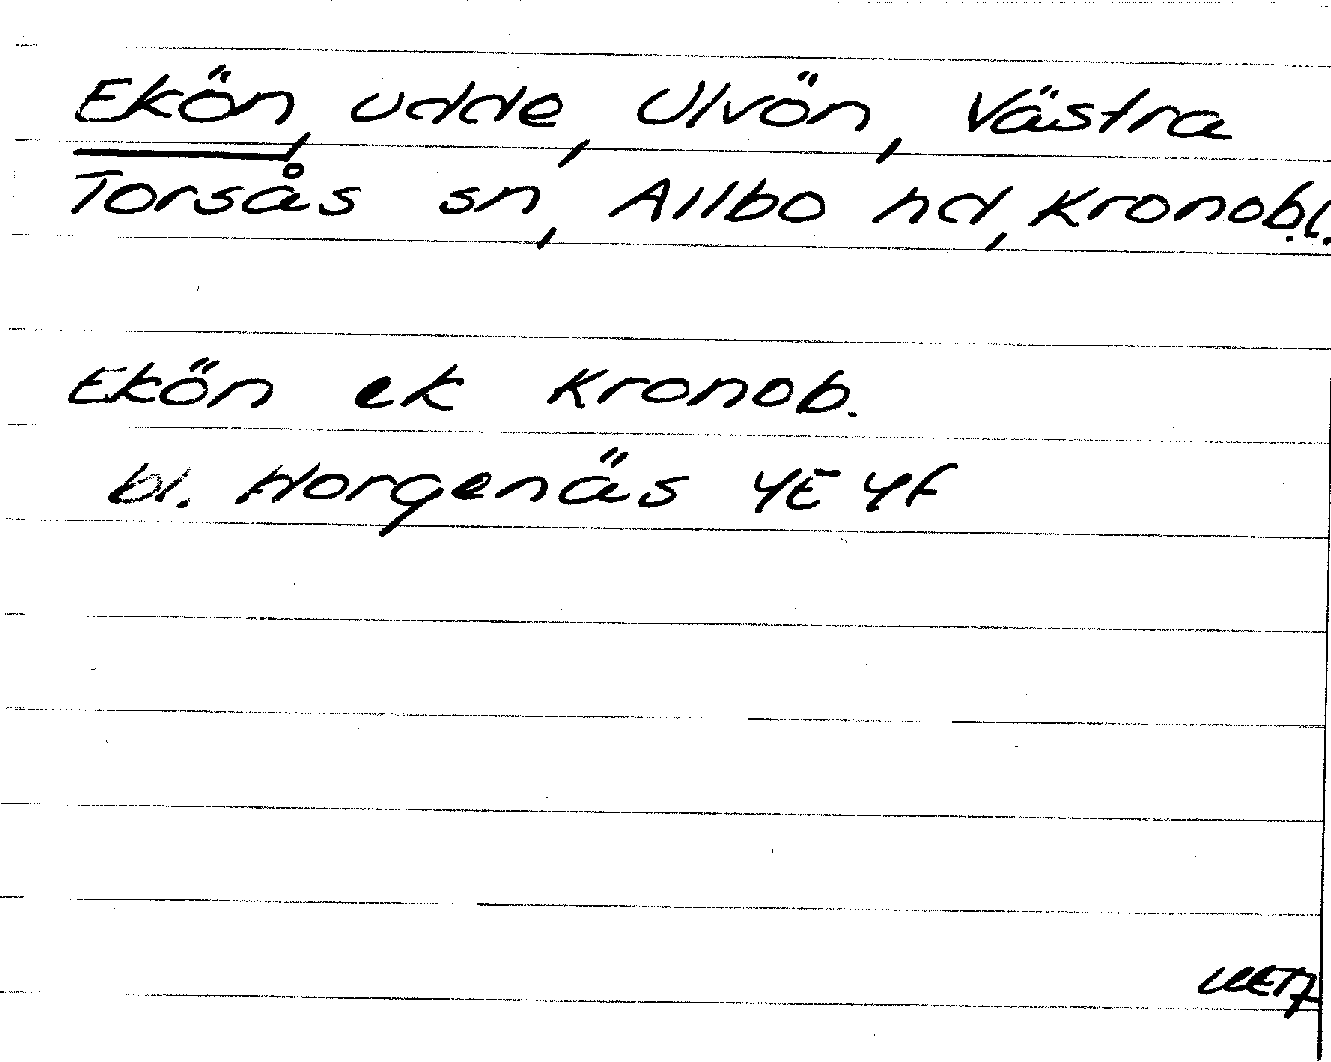 Ekön, udde, Ulvön, Västra
Torsås sn, Allbo hd, Kronob.l.
Ekön ek Kronob.
bl. Horgenäs 4E 4f